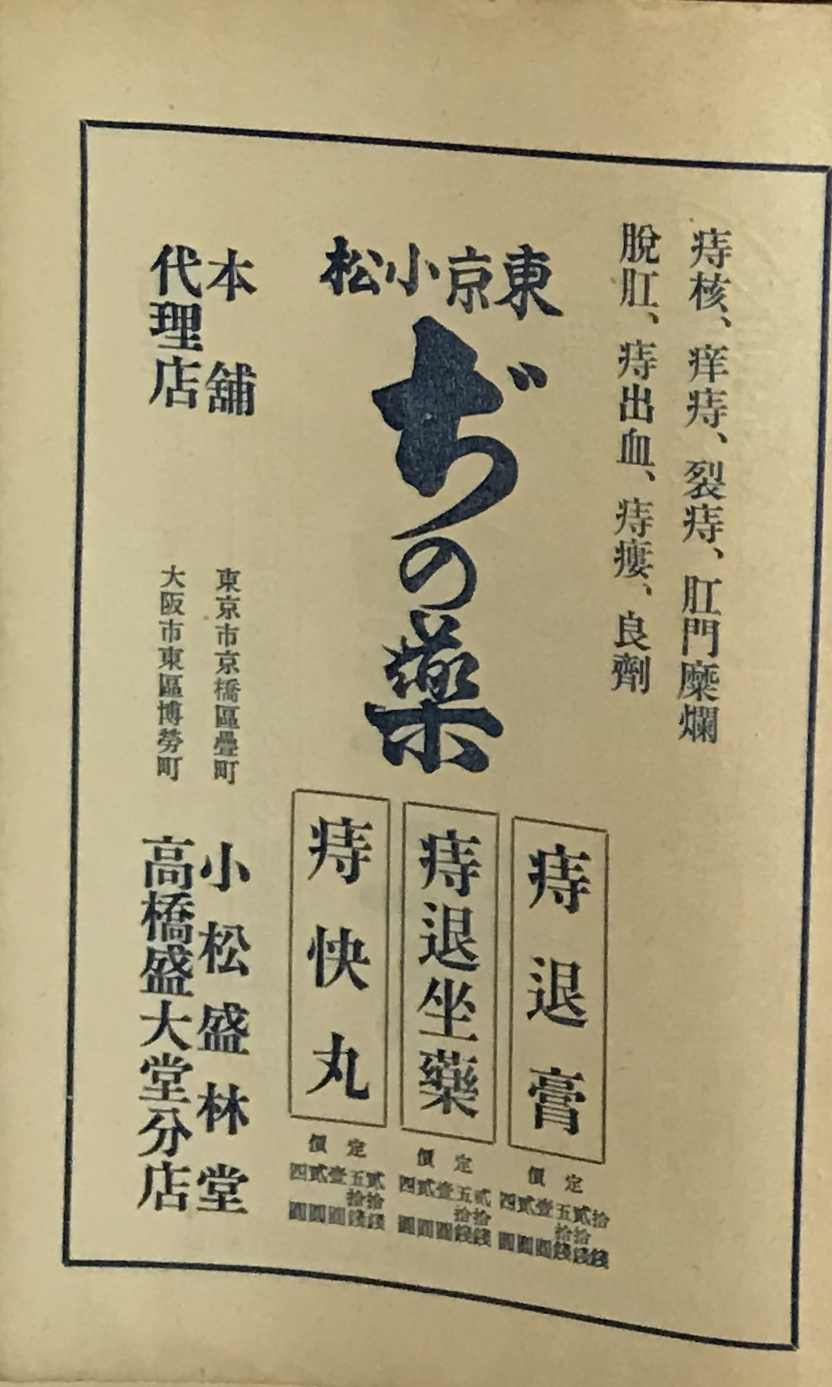 痔核、痒痔、裂痔、肛門糜爛
脫肛、痔出血、痔瘻、良劑
東京小松
ぢの藥
痔退膏
定價
拾錢
貳拾錢
五拾錢
壹圓
貳圓
四圓
痔退坐藥
定價
貳拾錢
五拾錢
壹圓
貳圓
四圓
痔快丸
定價
貳拾錢
五拾錢
壹圓
貳圓
四圓
本舖 東京市京橋區疊町 小松盛林堂
代理店 大阪市東區博勞町 高橋盛大堂分店